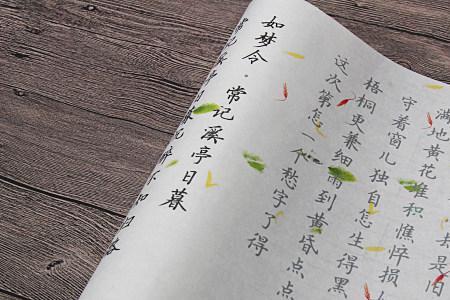 是旧
满地黄花堆积憔悴损
守着窗儿独自怎生得黑
梧桐更兼细雨到黄昏点点
这次第怎一个愁字了得
如梦令·常记溪亭日暮